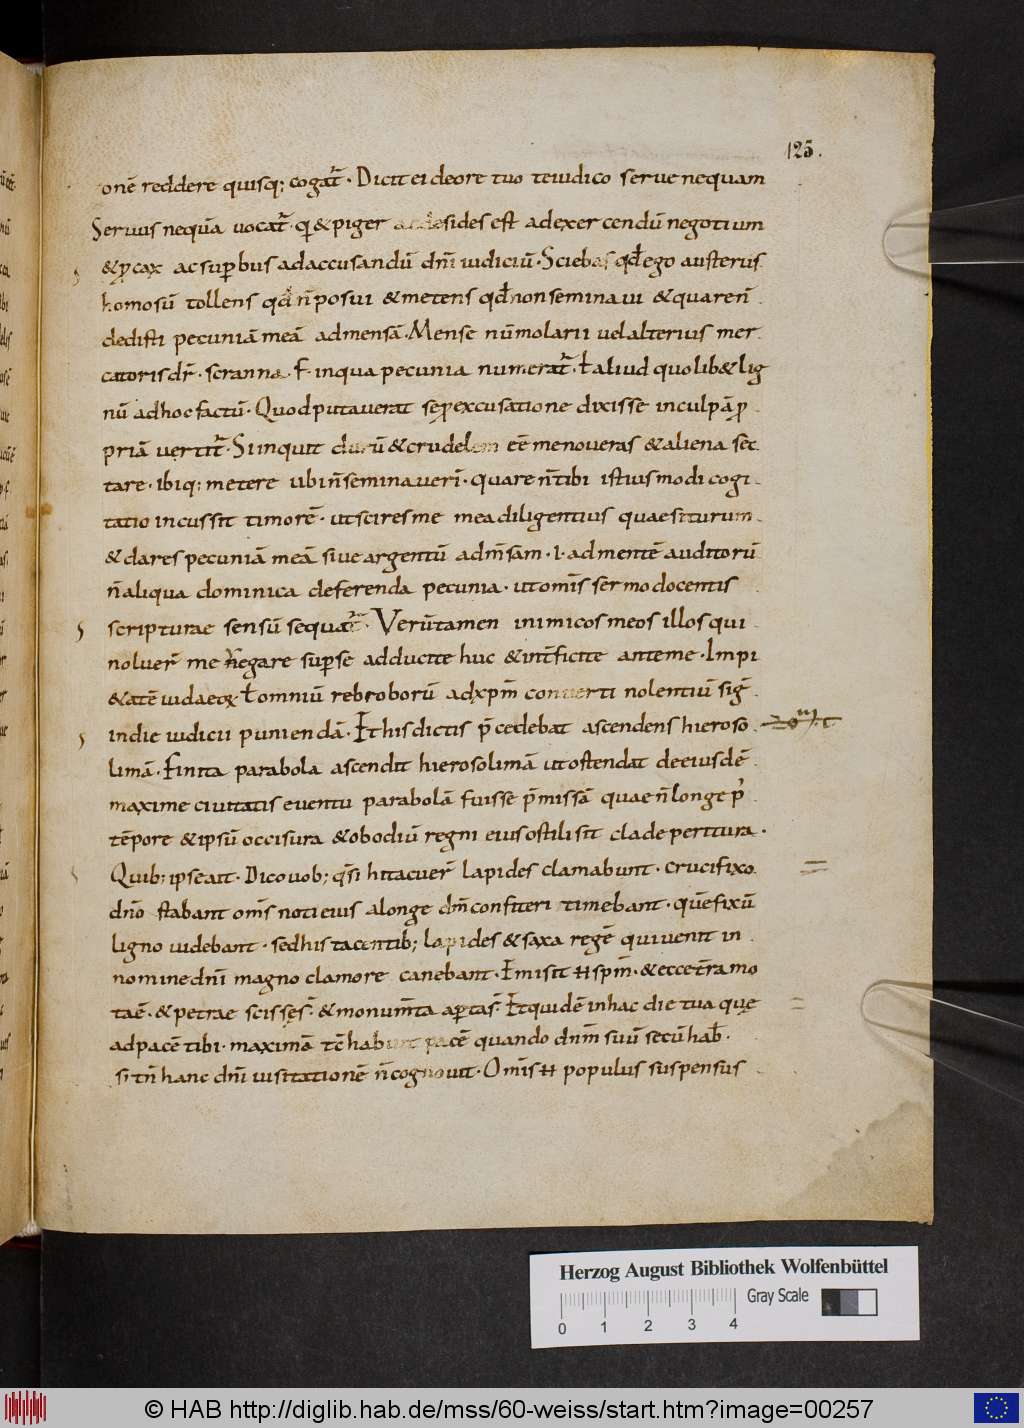 125.
onē reddere quisq; cogat᷑. Dicit ei deore tuo te iudico serue nequam
Seruus nequā uocat᷑. q̇ & piger ac desides est ad exercendū negotium
& p̱cax ac sup̱bus ad accusandū dn̄i iudiciū. Sciebas qđ ego austerus
homo sū tollens qđ n̄ posui & metens qđ non seminaui & quare n̄
dedisti pecuniā meā ad mensā. Mense nūmolarii uel alterius mer
catoris dr̄. pecunia numerat᷑. ł aliud quolib& lig
nū ad hoc factū. Quod putauerat se p̱ excusatione dixisse in culpā p̱
priā uertit᷑. Si inquit durū & crudelem eē me noueras & aliena sec
tare. ibiq: metere ubi n̄ seminauer̄. quare n̄ tibi istiusmodi cogi
tatio incussit timorē. ut scires me mea diligentius quaesiturum
& dares pecuniā meā siue argentū ad m̄sam. i. ad mentē auditorū
n̄ aliqua dominica deferenda pecunia. ut om̄is sermo docentis
scripturae sensū sequat᷑. Uerūtamen inimicos meos illos qui
noluer̄ me regnare sup̱ se adducite huc & int̄ficite ante me. Impi
&atē iudaeoꝝ ł omniū reproborū ad xp̄m conuerti nolentiū siḡ
in die iudicii puniendā. Et his dictis p̄cedebat ascendens hieroso
limā. Finita parabola ascendit hierosolimā ut ostendat de eiusdē
maxime ciuitatis euentu parabolā fuisse p̄missā quae n̄ longe p̱
tēpore & ipsū occisura & ob odiū regni eius ostili sit clade peritura.
Quib; ipse ait. Dico uob; q̄ si hi tacuer̄ lapides clamabunt. Crucifixo
dn̄o stabant om̄s noti eius a longe dn̄m confiteri timebant. quē fixū
ligno uidebant. sed his tacentib; lapides & saxa regē qui uenit in
nomine dn̄i magno clamore canebant. Emisit H sp̄m. & ecce t̄ra mo
taē. & petrae scissę s̄. & monum̄ta ap̱ta s̄. Et quidē in hac die tua quę
ad pacē tibi. maximā tc̄ habunt pacē quando dn̄m suū secū hab̄.
si tn̄ hanc dn̄i uisitationē n̄ cognouit. Om̄is H populus suspensus
Herzog August Bibliothek Wolfenbüttel
Gray Scale
0 1 2 3 4
© HAB http://diglib.hab.de/mss/60-weiss/start.htm?image=00257